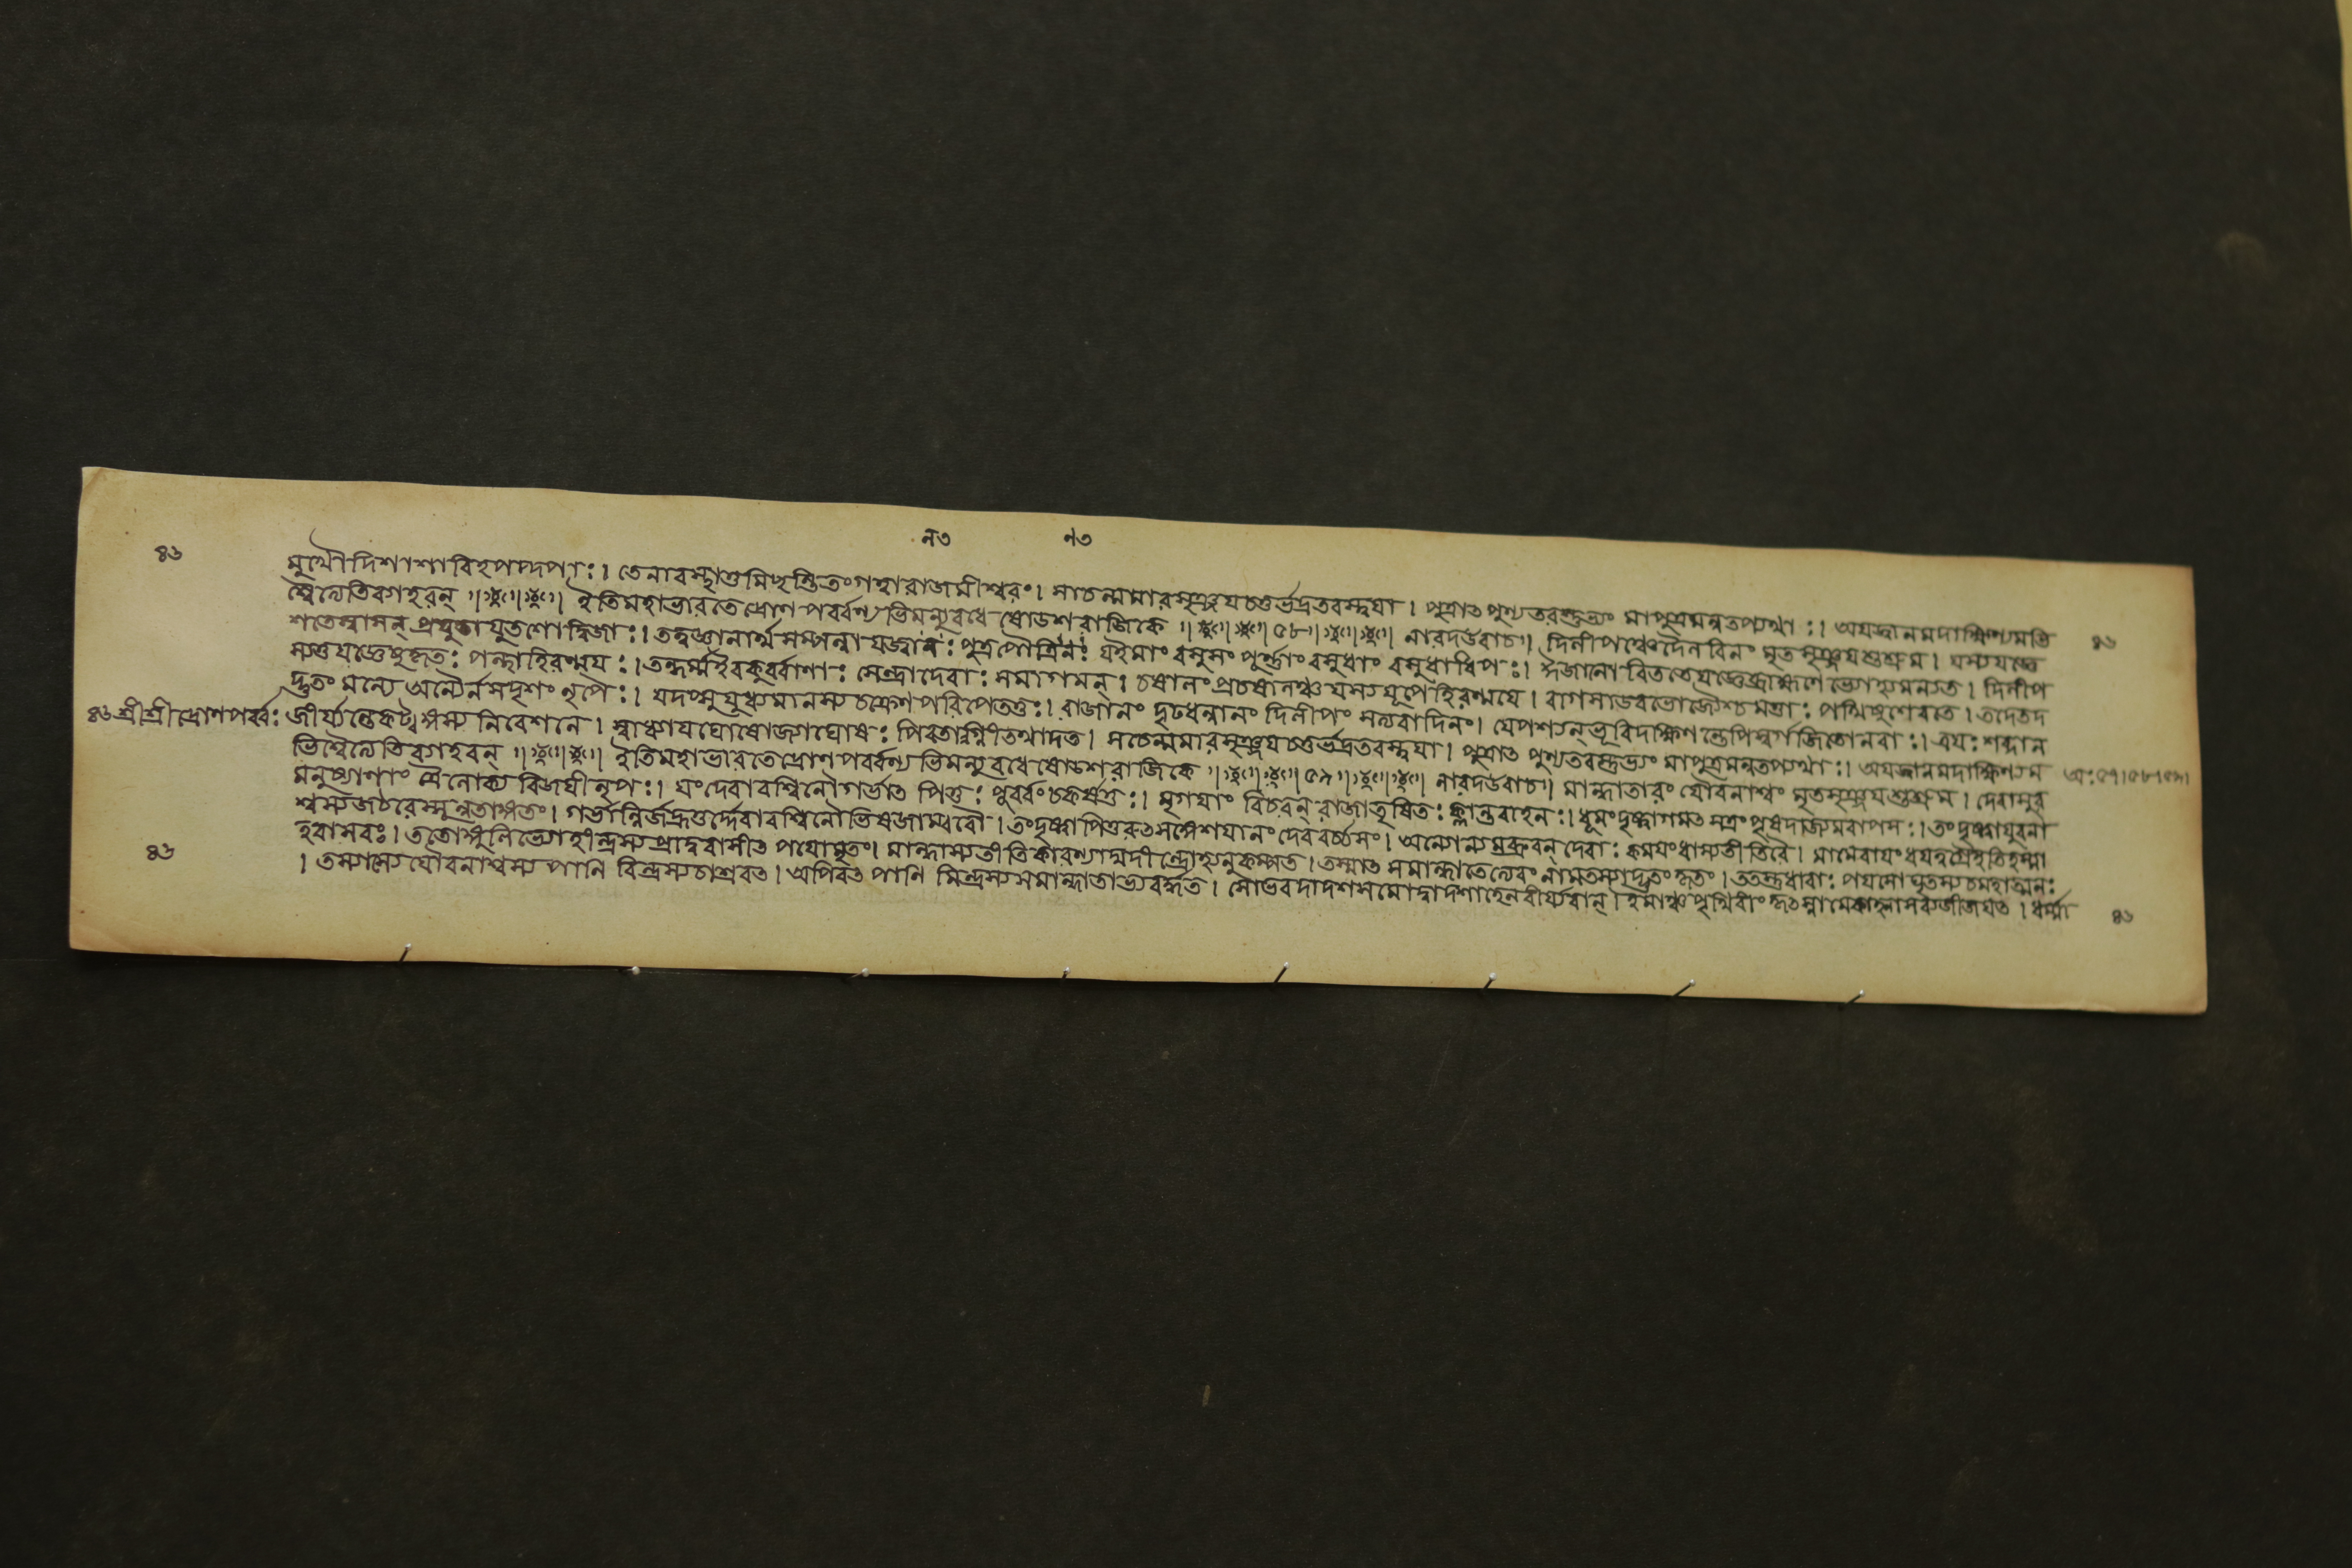 ৪৬ ন৩ ন৩
মুখৌদিশাশাবিহপদ্দপাঃ। তেনাবস্থাশুমিভৃষ্টিতংগঙ্গারাজমীশ্বরং। সাচন্মমারসৃঞ্জযচতুর্ভদ্রতবস্ত্বযা। পুত্রাত পুণ্যতরস্তুভ্যং মাপুত্রমন্বতপ্যথাঃ। অযজ্জানমদাক্ষিণ্যমভি
শ্বৈত্যেতিব্যাহরন্ ॥ ইতিমহাভারতেদ্রোণ পর্ব্বণ্য ভিমন্যুবধে ষোডশরাজিকে ॥৫৮॥ নারদউবাচ॥ দিলীপঞ্চেদৈলবিলং মৃতসৃঞ্জযশুশ্রুম। যস্যযজ্ঞে ৪৬
শতেষ্বাসন্ প্রযুতাযুতশোদ্বিজাঃ। তন্ত্রজ্ঞানার্থসম্পন্না যজ্বানঃ পুত্রপৌত্রিনঃ যইমাং বসুসং পূর্ণাং বসুধাং বসুধাধিপঃ। ঈজানো বিততেযজ্ঞেব্রাহ্মণেভ্যোহ্যমন্যত। দিলীপ
স্যতুযজ্ঞেষুকৃতঃ পন্থাহিরণ্ময়ঃ। তন্ধর্ম্মইবকুর্ব্বাণাঃ সেন্দ্রাদেবাঃ সমাগমন্। চষালংপ্রচষালঞ্চ যস্যযূপেহিরণ্ময়ে। রাগসাডবভোজ্যৈশ্চ মত্তাঃ পথিষুশেরতে। তদেতদ
দ্ভুতং মন্যে অন্যৈর্নসদৃশং নৃপৈঃ। যদপ্সুযুধ্যমানস্য চক্রেণপরিপেততুঃ। রাজানং দৃঢধন্বানং দিলীপং সত্যবাদিনং। যেপশ্যন্ভূরিদক্ষিণন্তেপিস্বর্গজিতোনরাঃ। ত্রযঃ শব্দান
৪৬ শ্রীশ্রীদ্রোণপর্ব্বঃ জীর্য্যন্তেখট্বাঙ্গস্য নিবেশনে। স্বাধ্যাযঘোষোজ্যাঘোষঃ পিবতাশ্নীতখাদত। সচেন্মমারসৃঞ্জযচতুর্ভদ্রতবস্ত্বযা। পুত্রাত পুণ্যতরস্তুভ্যং মাপুত্রমন্বতপ্যথাঃ। অযজ্জানমদাক্ষিণ্যম
ভিশ্বৈত্যেতিব্যাহরন্ ॥ ইতিমহাভারতেদ্রোণ পর্ব্বণ্য ভিমন্যুবধেষোডশরাজিকে ॥৫৯॥ নারদউবাচ॥ মান্ধাতারং যৌবনাশ্বং মৃতসৃঞ্জযশুশ্রুম। দেবাসুর অঃ ৫৭।৫৮।৫৯।
মনুষ্যাণাং ত্রৈলোক্য বিজযীনৃপঃ। যংদেবাবশ্বিনৌগর্ভাত পিতুঃ পূর্ব্বংচকর্ষতুঃ। মৃগযাং বিচরন্ রাজাতৃষিতঃ ক্লান্তবাহনঃ। ধূমংদৃষ্ট্বাগমত সত্রং পৃষদাজ্যমবাপসঃ। তংদৃষ্ট্বাযুবনা
শ্বস্যজঠরেস্মুনুতাঙ্গতং। গর্ভান্নির্জহ্রতুর্দ্দেবাবশ্বিনৌভিষজাম্বরৌ। তংদৃষ্ট্বাপিতুরুতসঙ্গেশযানং দেববর্চ্চসং। অন্যোন্যমব্রুবন্ দেবাঃ কমযংধাস্যতীতিবৈ। মামেবাযংধযত্বগ্রেইতিহস্মা
হবাসবঃ। ততোঙ্গুলিভ্যোহীন্দ্রস্য প্রাদুরাসীত পযোমৃতং। মান্ধাস্যতীতিকারুণ্যাদ্যদীন্দ্রোহ্যনুকম্পত। তস্মাত সমান্ধাতেত্যেবং নামতস্যাদ্ভুতং কৃতং। ততস্তুধারাঃ পযসো ঘৃতস্যচমহাত্মনঃ
৪৬ । তস্যাস্যে যৌবনাশ্বস্য পানি রিন্দ্রস্যচাস্রবত। অপিবত পানি মিন্দ্রস্যসমান্ধাতাভ্যবর্দ্ধত। সোভবদ্দ্বাদশসমোদ্বাদশাহেনবীর্য্যবান্। ইমাঞ্চ পৃথিবীং কৃৎস্নামেকাহ্নাসব্যজীজযত। ধর্ম্মা ৪৬